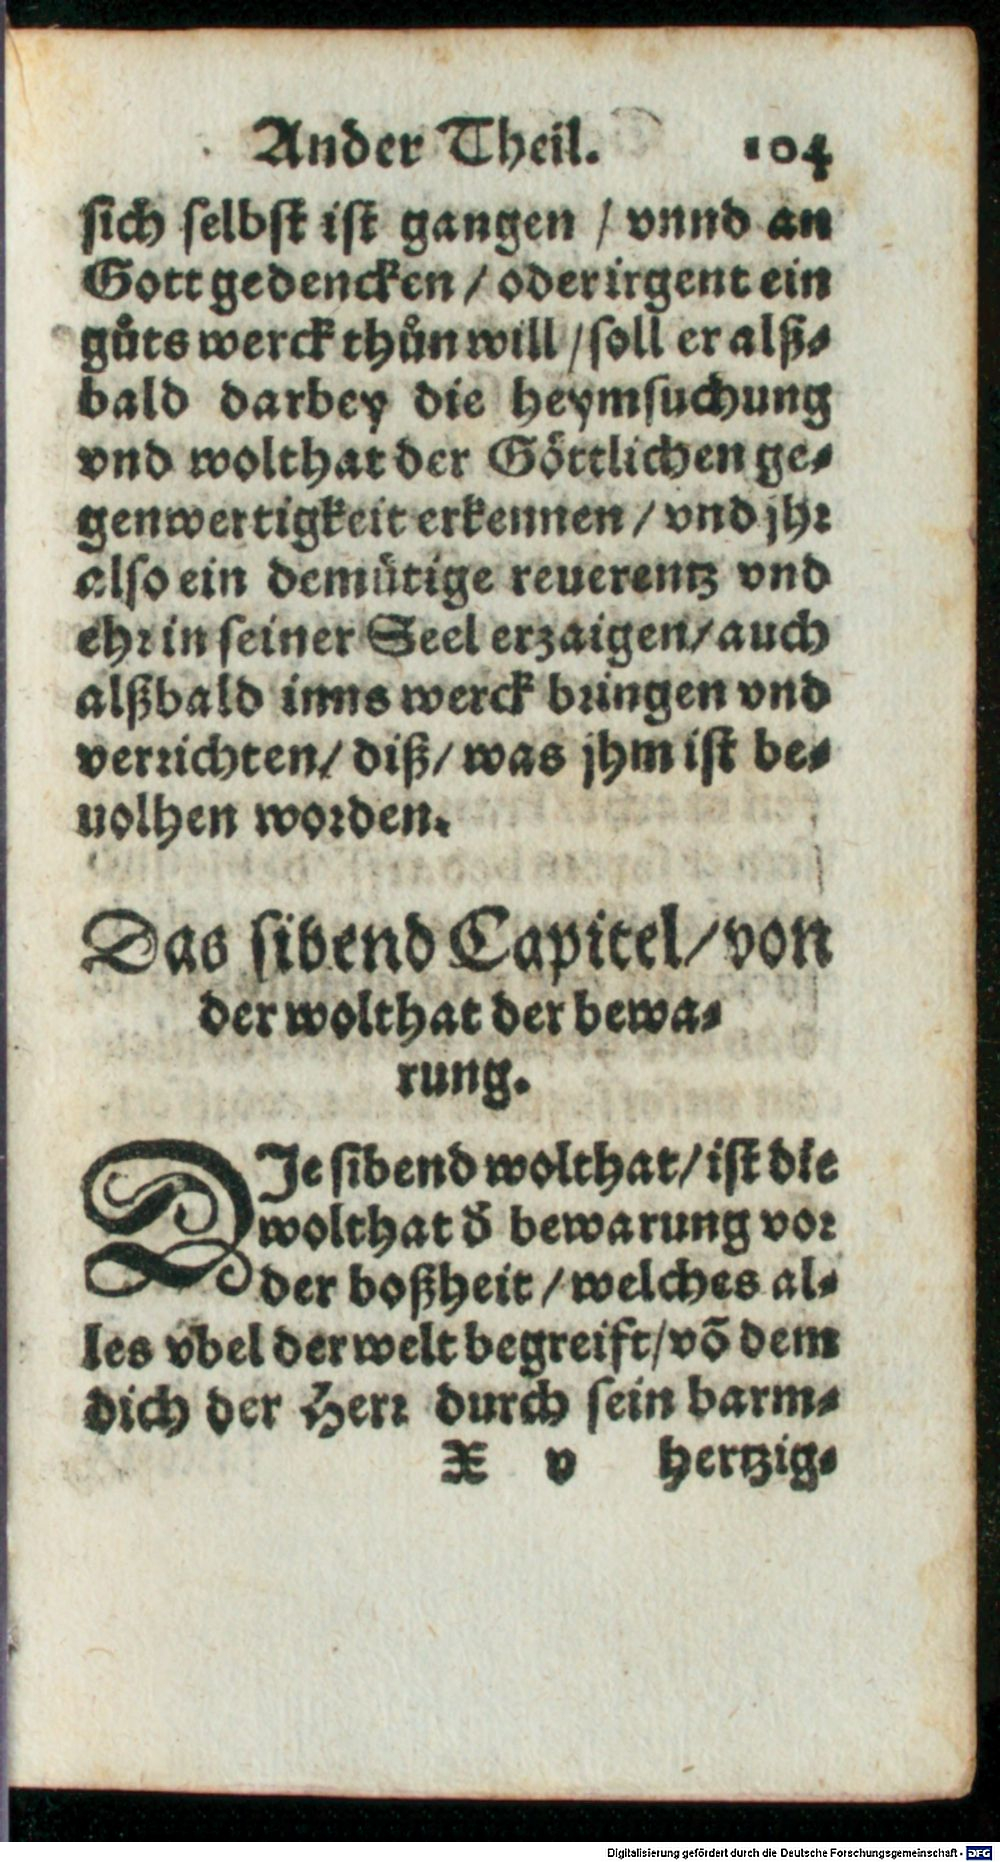 Ander Theil. 104
sich selbst ist gangen / vnnd an
Gott gedencken / oder irgent ein
gůts werck thůn will / soll er alß-
bald darbey die heymsuchung
vnd wolthat der Göttlichen ge-
genwertigkeit erkennen / vnd jhr
also ein demütige reuerentz vnd
ehr in seiner Seel erzaigen / auch
alßbald inns werck bringen vnd
verrichten / diß / was jhm ist be-
uolhen worden.
Das sibend Capitel / von
der wolthat der bewa-
rung.
DJe sibend wolthat / ist die
wolthat d̄ bewarung vor
der boßheit / welches al-
les vbel der welt begreift / võ dem
dich der Herr durch sein barm-
X v hertzig-
Digitalisierung gefördert durch die Deutsche Forschungsgemeinschaft - DFG